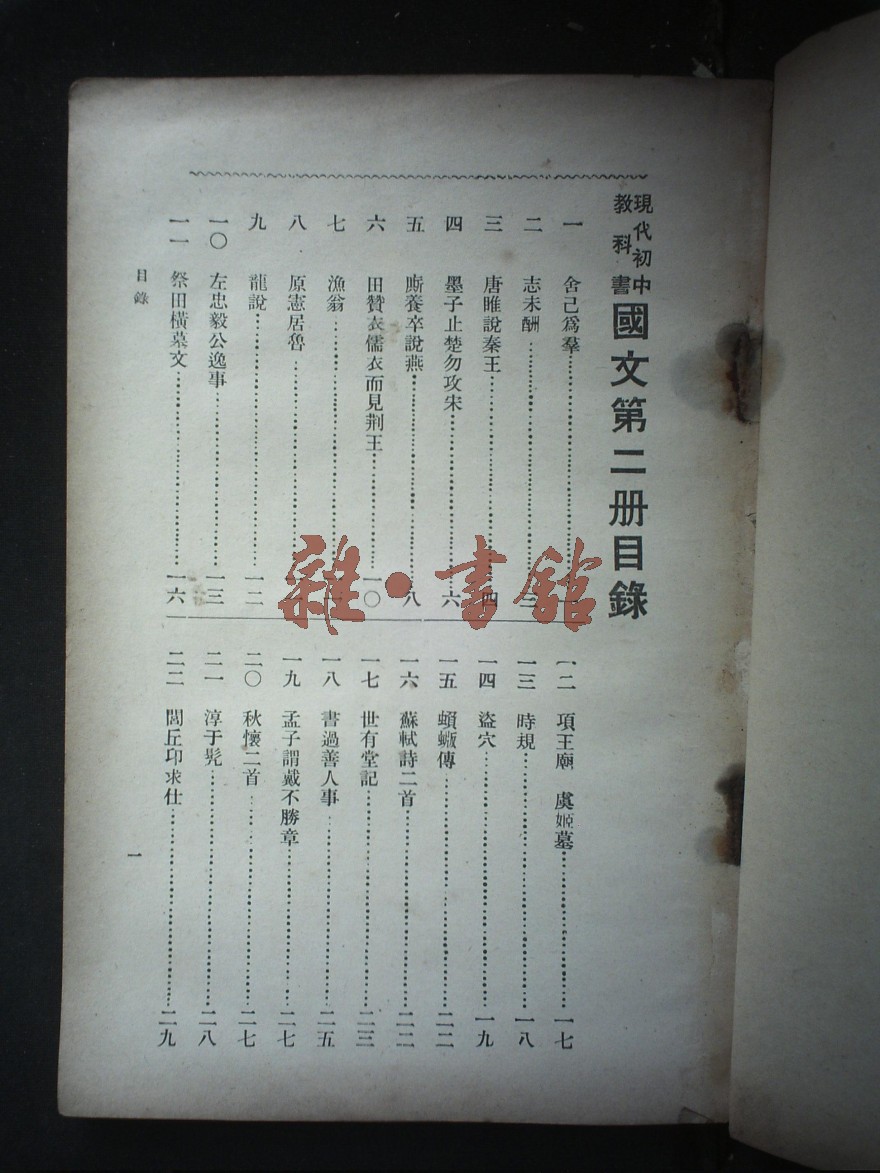 現代初中
教科書
國文第二册目錄
一 舍己爲羣
二 志未酬 三
三 唐雎說秦王 四
四 墨子止楚勿攻宋 六
五 廝養卒說燕 八
六 田贊衣儒衣而見荆王 一〇
七 漁翁
八 原憲居魯
九 龍說 一二
一〇 左忠毅公逸事 一三
一一 祭田橫墓文 一六
一二 項王廟 虞姬墓 一七
一三 時規 一八
一四 盜穴 一九
一五 蝜蝂傳 二二
一六 蘇軾詩二首 二二
一七 世有堂記 二三
一八 書過善人事 二五
一九 孟子謂戴不勝章 二七
二〇 秋懷二首 二七
二一 淳于髡 二八
二二 閭丘卬求仕 二九
目錄
一
雜·書館